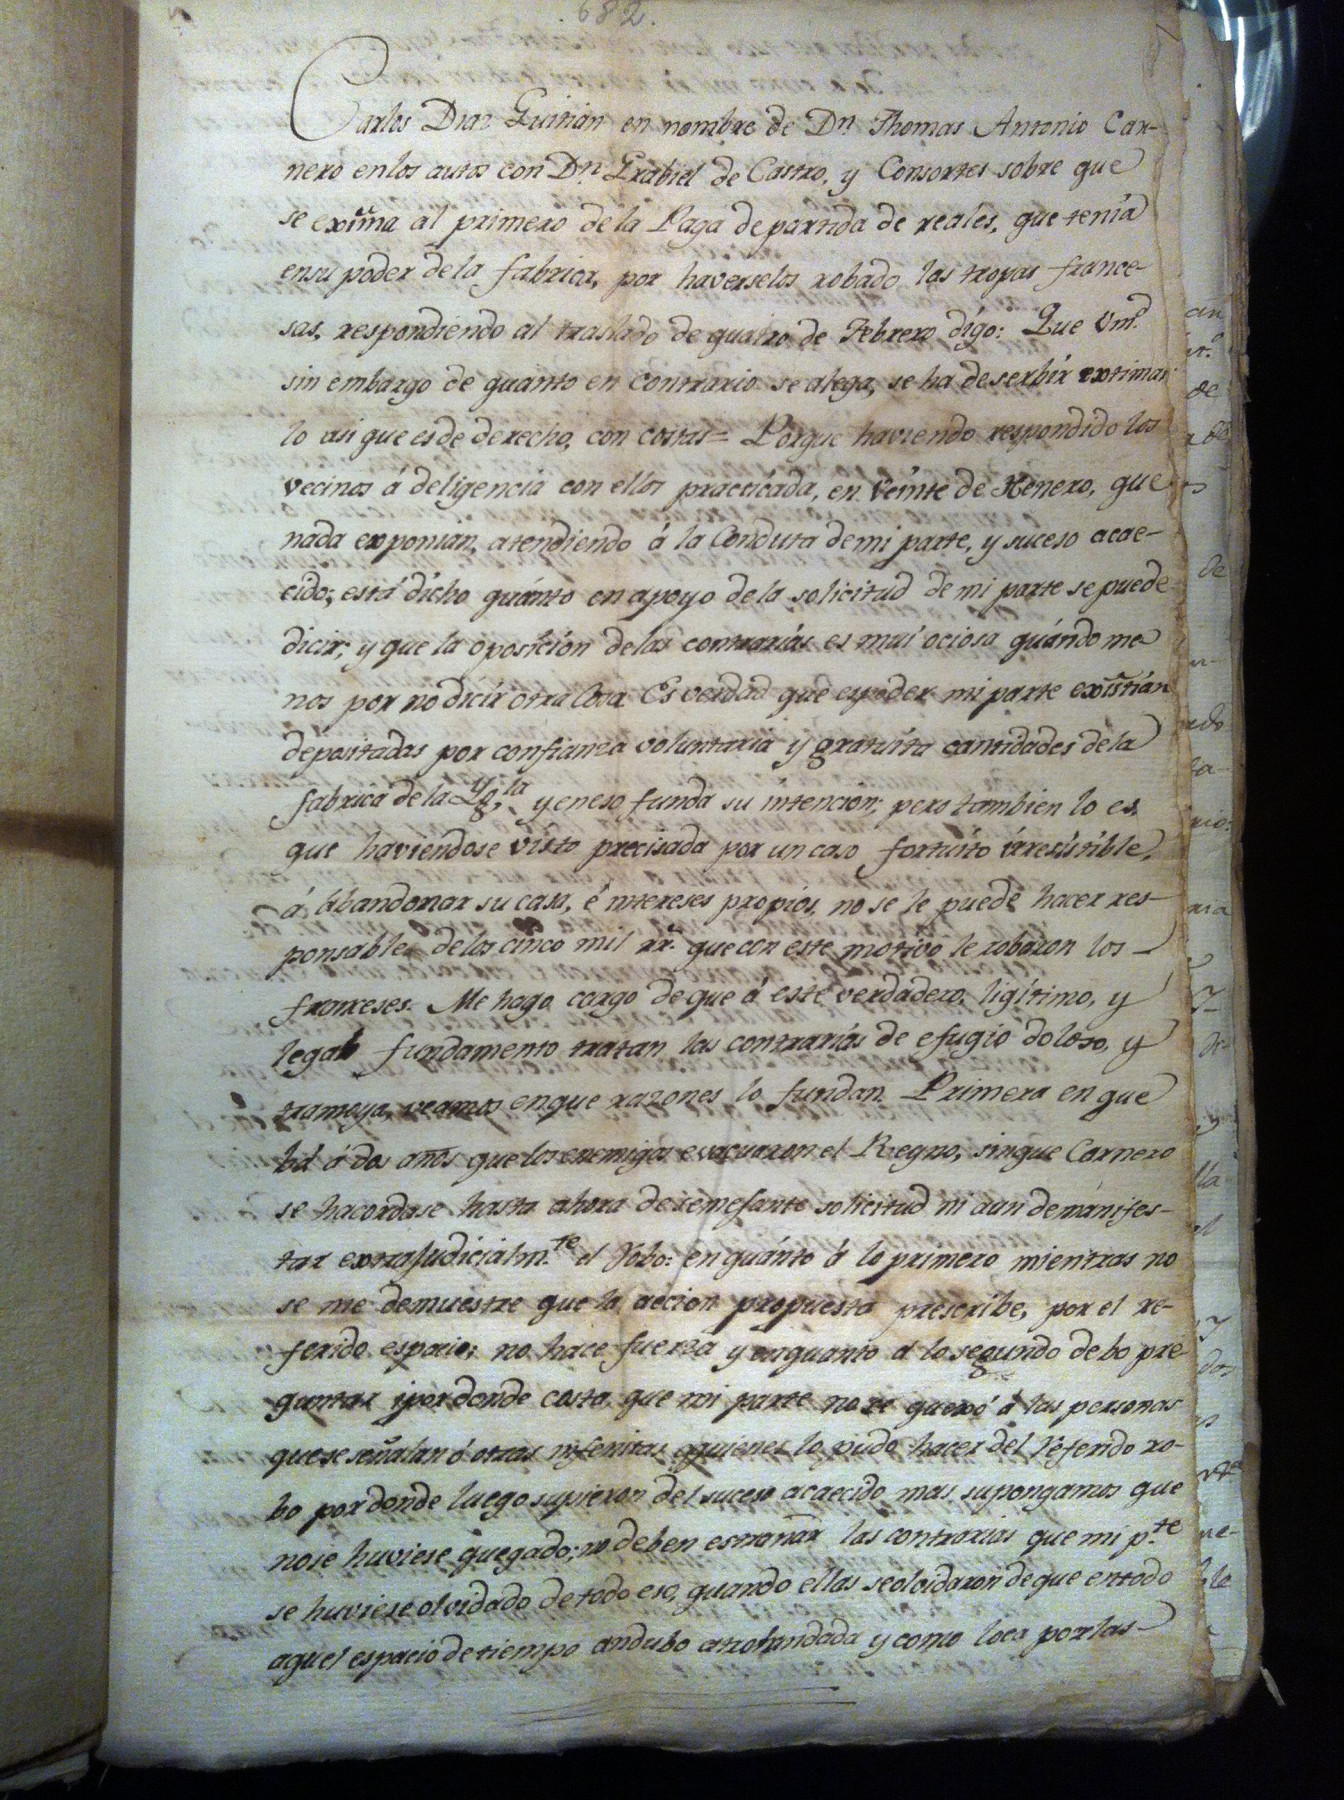 682.
Carlos Diaz Guitian en nombre de Dn. Thomas Antonio Car-
nero en los autos con Dn. Grabiel de Castro, y Consortes sobre que
se exima al primero de la Paga de partida de reales, que tenía
en su poder de la fabrica, por haverselos robado las tropas france-
sas, respondiendo al traslado de quatro de Febrero digo: Que Vmd.
sin embargo de quanto en contrario se alega, se ha de serbir extimar
lo asi que es de derecho, con costas = Porque haviendo respondido los
vecinos á deligencia con ellos practicada, en veinte de Henero, que
nada exponian, atendiendo á la Conduta de mi parte, y suceso acae-
cido; está dicho quánto en apoyo de la solicitud de mi parte se puede
dicir; y que la oposicion de las contrarias es mui ociosa quándo me-
nos por no dicir otra Cosa. Es verdad que en poder mi parte existián
depositadas por confianza voluntaria y gratuita cantidades de la
fabrica de la Ygla. y en eso funda su intencion; pero tambien lo es,
que haviendose visto precisada por un caso fortuito irresistible,
á abandonar su casa, é intereses propios, no se le puede hacer res-
ponsable de los cinco mil rr.s que con este motivo le robaron los
franceses. Me hago cargo de que á este verdadero, ligítimo, y
legal fundamento tratan las contrarias de efugio doloso, y
tramoya, veamos en que razones lo fundan. Primera en que
há á dos años que los enemigos evacuaron el Regno, sin que Carnero
se hacordase hasta ahora de semejante solicitud ni aun de manifes-
tar extrajudicialm.te el Robo: en quánto á lo primero mientras no
se me demuestre que la accion propuesta prescribe, por el re-
ferido espacio; no hace fuerza y en quanto á lo segundo debo pre-
guntar ¿por donde costa, que mi parte no se quexó á las personas
que se señalan ó otras infenitas quienes lo pudo hacer del referido ro-
bo por donde luego supieron del suceso acaecido mas supongamos que
no se huviese quegado; no deben estrañar las contrarias que mi p.te
se huviese olvidado de todo eso, quando ellas se olvidaron de que en todo
aquel espacio de tiempo andubo atrohundada y como loca por las